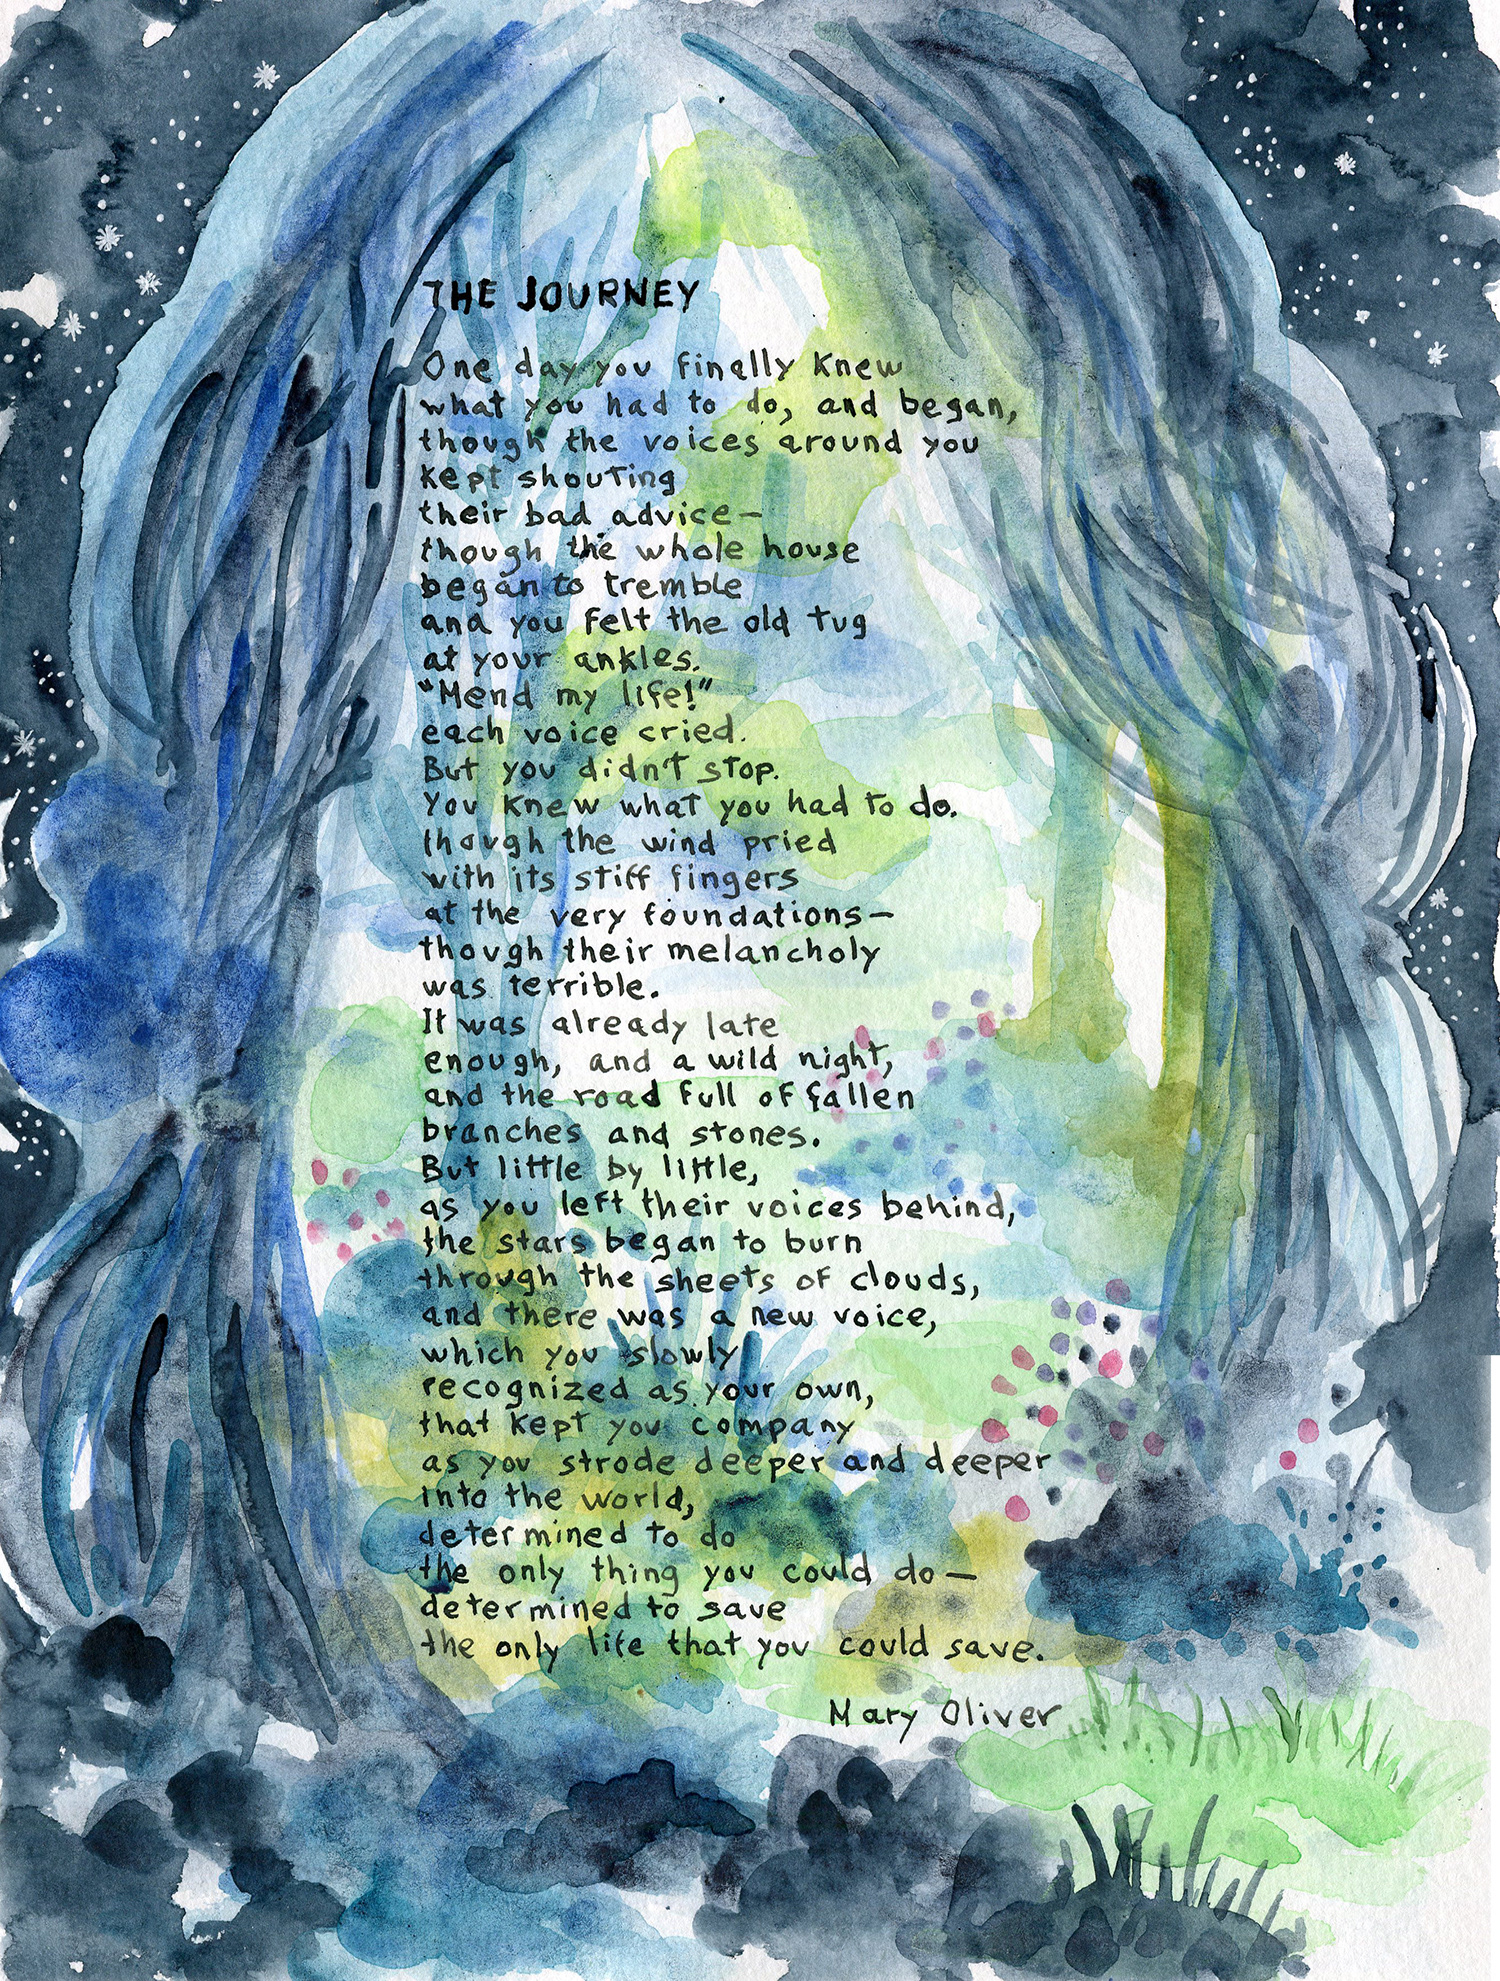 THE JOURNEY
One day you finally knew
what you had to do, and began,
though the voices around you
kept shouting
their bad advice—
though the whole house
began to tremble
and you felt the old tug
at your ankles.
"Mend my life!"
each voice cried.
But you didn't stop.
You knew what you had to do.
though the wind pried
with its stiff fingers
at the very foundations—
though their melancholy
was terrible.
It was already late
enough, and a wild night,
and the road full of fallen
branches and stones.
But little by little,
as you left their voices behind,
the stars began to burn
through the sheets of clouds,
and there was a new voice,
which you slowly
recognized as your own,
that kept you company
as you strode deeper and deeper
into the world,
determined to do
the only thing you could do—
determined to save
the only life that you could save.
Mary Oliver